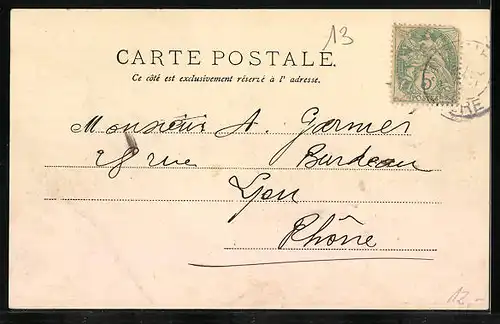 13
CARTE POSTALE.
Ce côté est exclusivement réservé à l' adresse.
Monsieur A. Garnier
28 rue Burdeau
Lyon
Rhône
12,-